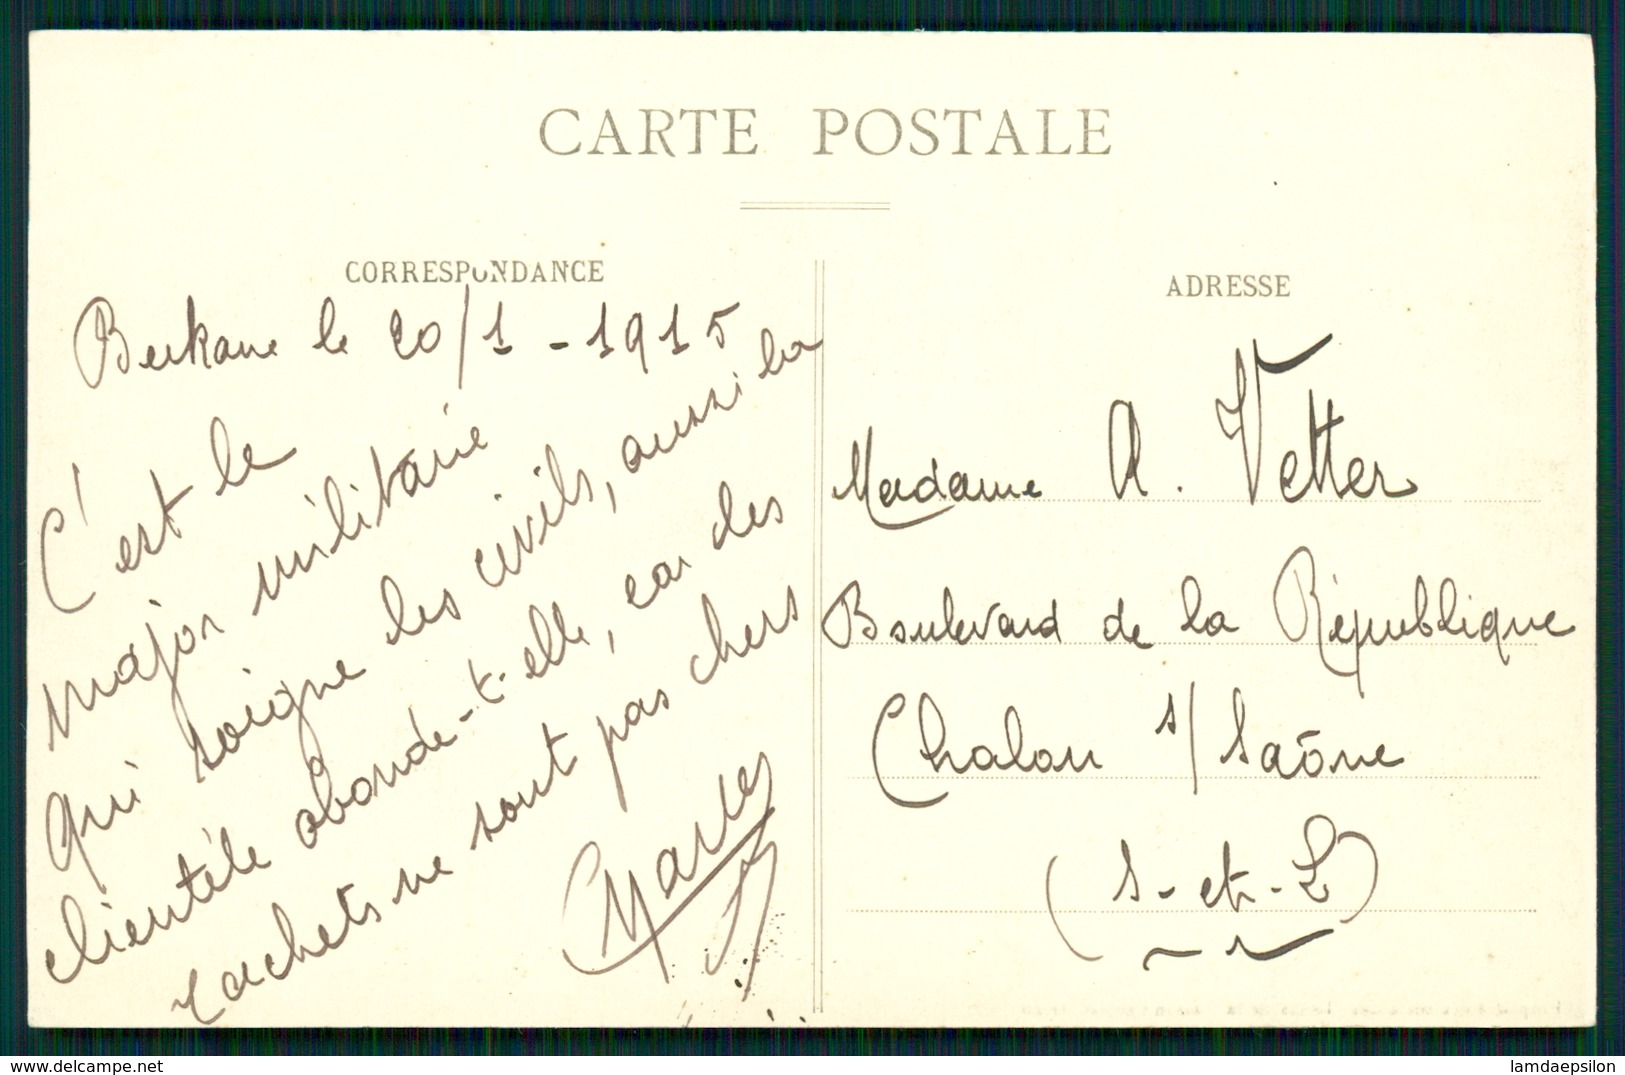 CARTE POSTALE
CORRESPONDANCE
Berkane le 20/1 - 1915
C'est le
major militaire
qui soigne les civils, aussi la
clientèle abonde-t-elle, car des
cachets ne sont pas chers
ADRESSE
Madame A. Vetter
Boulevard de la République
Chalon s/ Saône
(S-et-L)
www.delcampe.net
lamdaepsilon